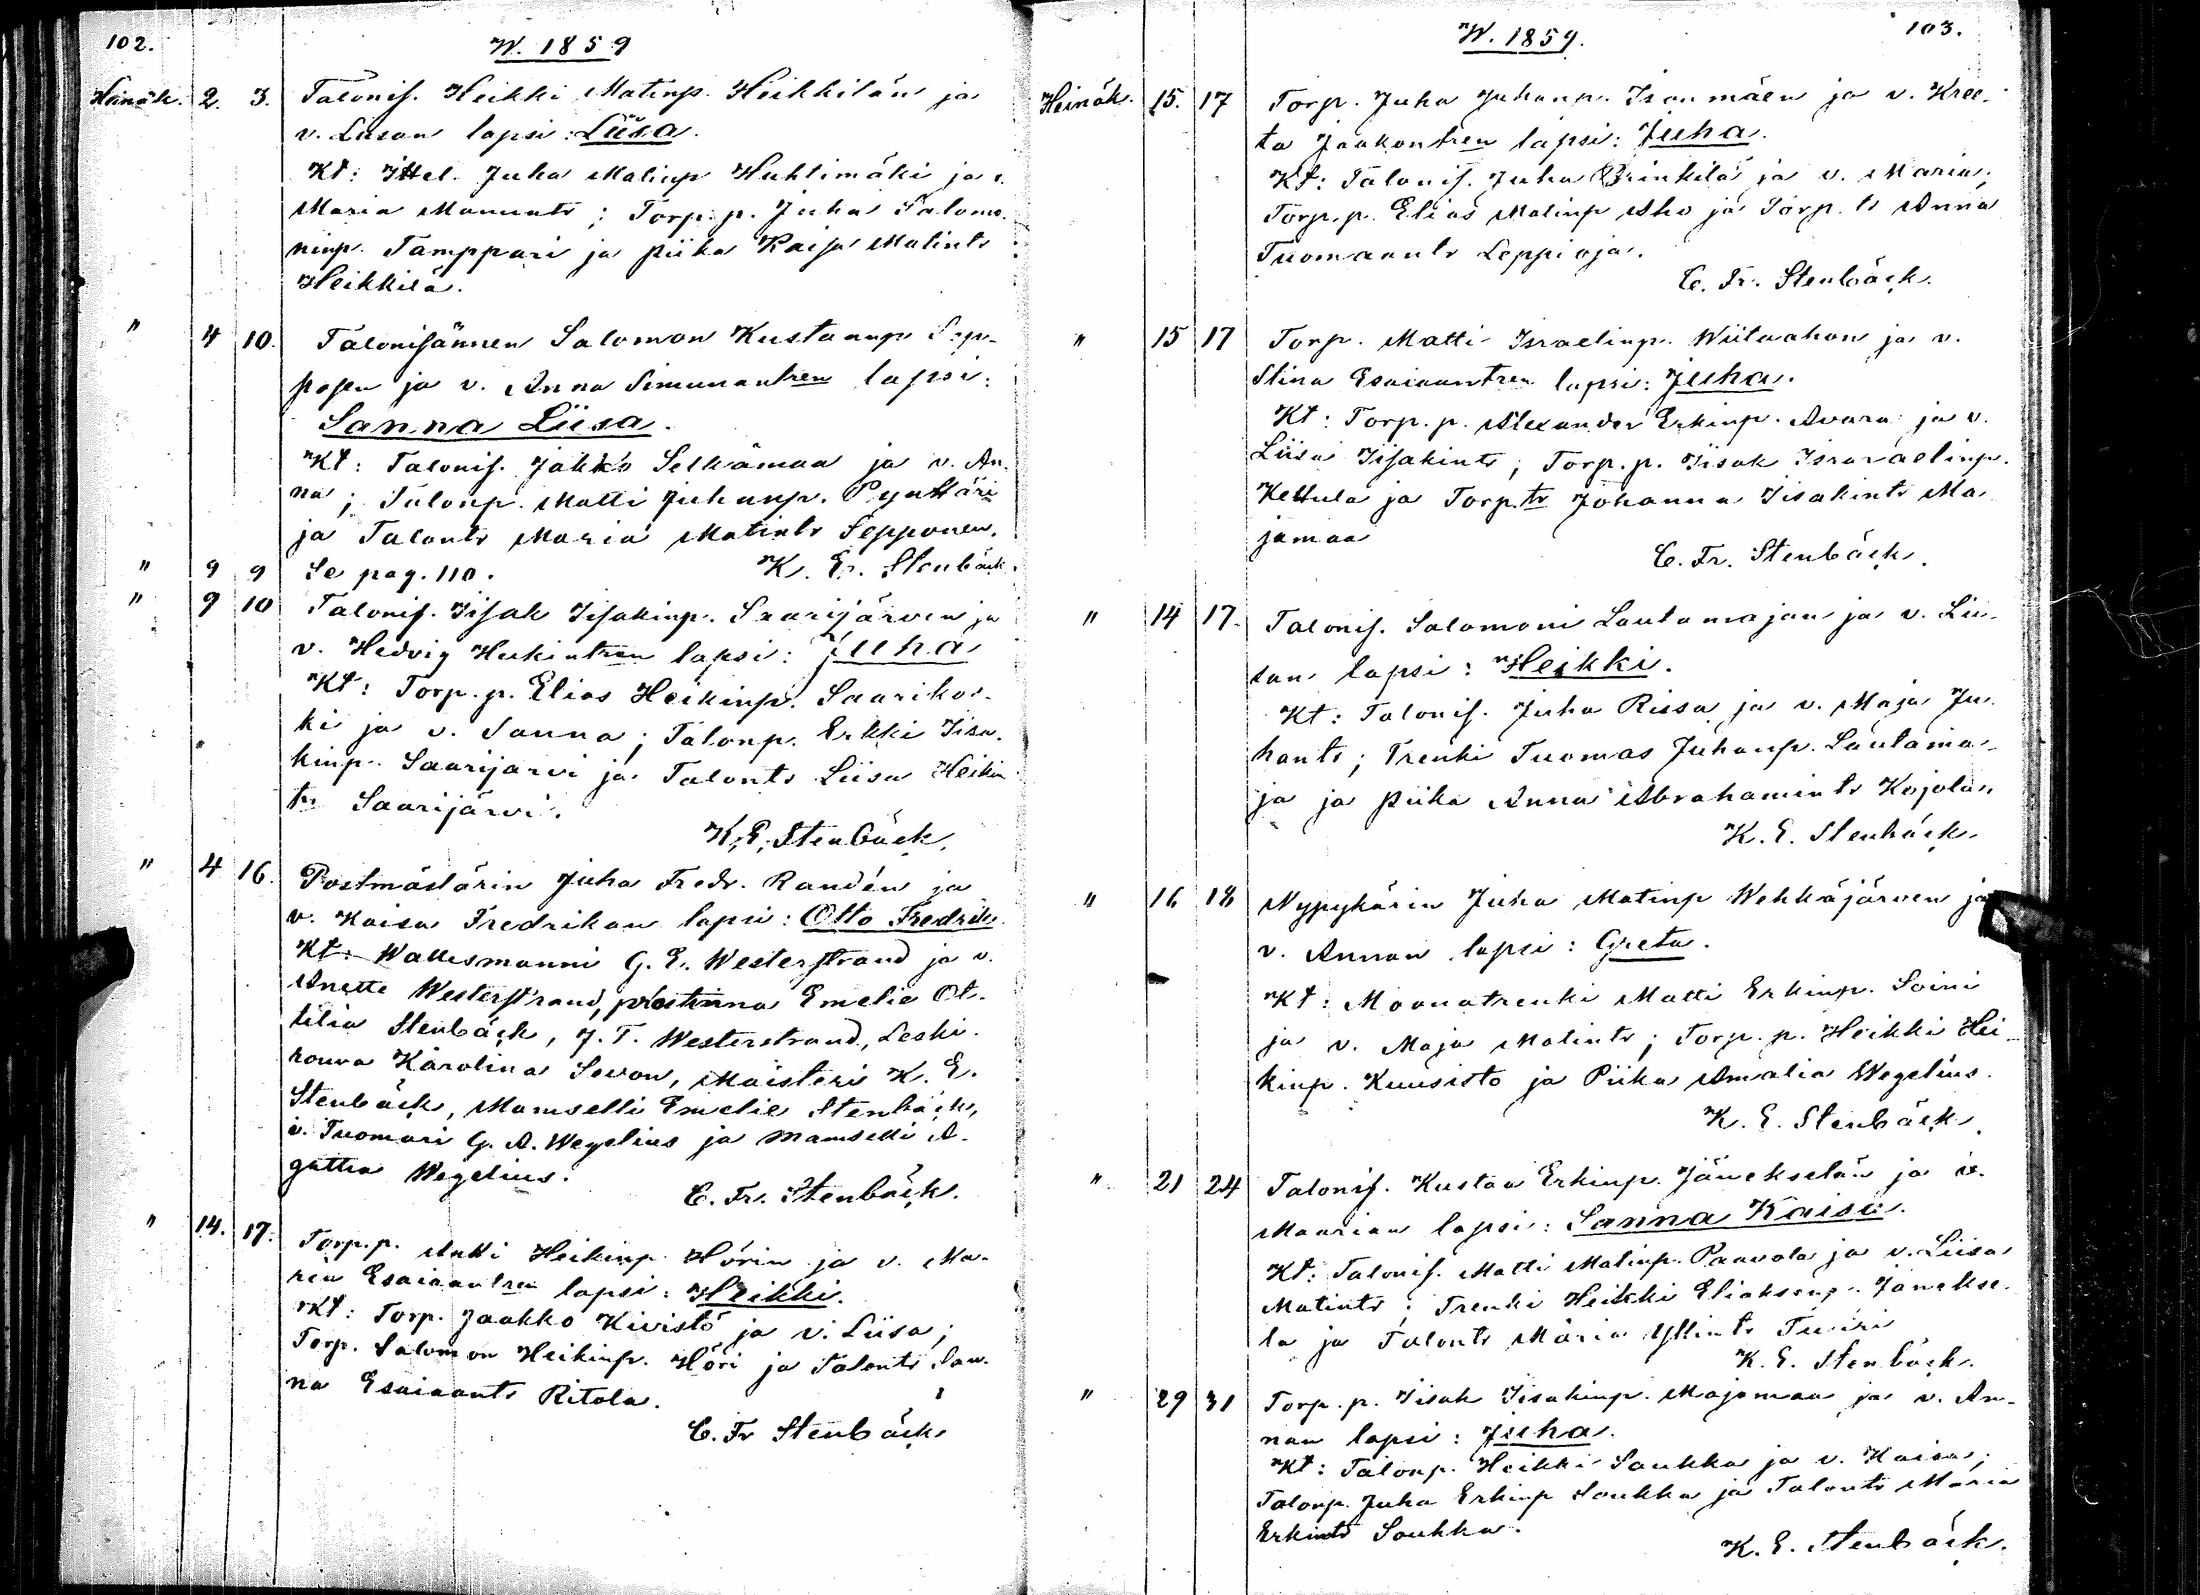 102.
W. 1859
Heinäk. 2. 3. Talonis. Heikki Matinp. Heikkilän ja
v. Liisan lapsi: Liisa.
Kt: Ittel. Juha Matinp Huhtimäki ja v.
Maria Manuntr; Torp. p. Juha Salomo-
ninp. Tamppari ja piika Kaisa Matintr
Heikkilä.
" 4 10. Talonisännen Salomon Kustaanp Sep-
posen ja v. Anna Simunantren lapsi:
Sanna Liisa.
Kt: Talonis. Jakko Selkämaa ja v. An-
na; Talonp. Matti Juhanp. Pynttäri
ja Talontr Maria Matintr Sepponen.
K. E. Stenbäck.
" 9 9 Se pag. 110.
" 9 10 Talonis. Iisak Isakinp. Saarijärven ja
v. Hedvig Heikintren lapsi: Juha
Kt: Torp. p. Elias Heikinp. Saarikos-
ki ja v. Sanna; Talonp. Erkki Iisa-
kinp. Saarijärvi ja Talontr Liisa Heikin
tr Saarijärvi.
K. E. Stenbäck.
" 4 16. Postmästärin Juha Fredr. Randén ja
v. Kaisa Fredrikan lapsi: Otto Fredrik
Kt: Wallesmanni G. E. Westerstrand ja v.
Anette Westerstrand, prostinna Emelie Ot-
tilia Stenbäck, J. T. Westerstrand, Leski-
rouva Karolina Sevon, Maisteri K. E.
Stenbäck, Mamselli Emelie Stenbäck,
v. Tuomari G. A. Wegelius ja mamselli A-
gatha Wegelius.
C. Fr. Stenbäck.
" 14. 17. Torp. p. Antti Heikinp Hörin ja v. Ma-
rin Esaiaantren lapsi: Heikki.
Kt: Torp. Jaakko Kivistö ja v. Liisa;
Torp. Salomon Heikinp. Höri ja Talontr San-
na Esaiaantr Ritola.
C. Fr Stenbäck
W. 1859.
103.
Heinäk. 15. 17 Torp. Juha Juhanp. Isonmäen ja v. Kree-
ta Jaakontren lapsi: Juha.
Kt: Talonis. Juha Brinkilä ja v. Maria;
Torp. p. Elias Matinp Aho ja Torp. tr Anna
Tuomaantr Leppioja.
C. Fr. Stenbäck.
" 15 17 Torp. Matti Israelinp. Wiitaahon ja v.
Stina Esaiaantren lapsi: Juha.
Kt: Torp. p. Alexander Erkinp. Avara ja v.
Liisa Iisakintr; Torp. p. Iisak Israraelinp.
Kettula ja Torp. tr Johanna Iisakintr Ma-
jamaa
C. Fr. Stenbäck.
" 14 17. Talonis. Salomoni Lautamajan ja v. Lii-
san lapsi: Heikki.
Kt: Talonis. Juha Rissa ja v. Maja Ju-
hantr; Trenki Tuomas Juhanp. Lautama-
ja ja piika Anna Abrahamintr Kojola.
K. E. Stenbäck.
" 16 18 Nypykärin Juha Matinp Wehkäjärven ja
v. Annan lapsi: Greta.
Kt: Moonatrenki Matti Erkinp. Soini
ja v. Maja Matintr; Torp. p. Heikki Hei-
kinp. Kuusisto ja Piika Amalia Wegelius.
K. E. Stenbäck.
" 21 24 Talonis. Kustaa Erkinp. Jänekselän ja v.
Maarian lapsi: Sanna Kaisa.
Kt: Talonis. Matti Matinp. Paavola ja v. Liisa
Matintr; Trenki Heikki Eliaksenp. Jänekse-
la ja Talontr Maria Yllintr Tuuri
K. E. Stenbäck.
" 29 31 Torp. p. Iisak Iisakinp. Majamaa ja v. An-
nan lapsi: Juha.
Kt: Talonp. Heikki Saukka ja v. Kaisa;
Talonp. Juha Erkinp Saukka ja Talontr Maria
Erkintr Saukka.
K. E. Stenbäck.